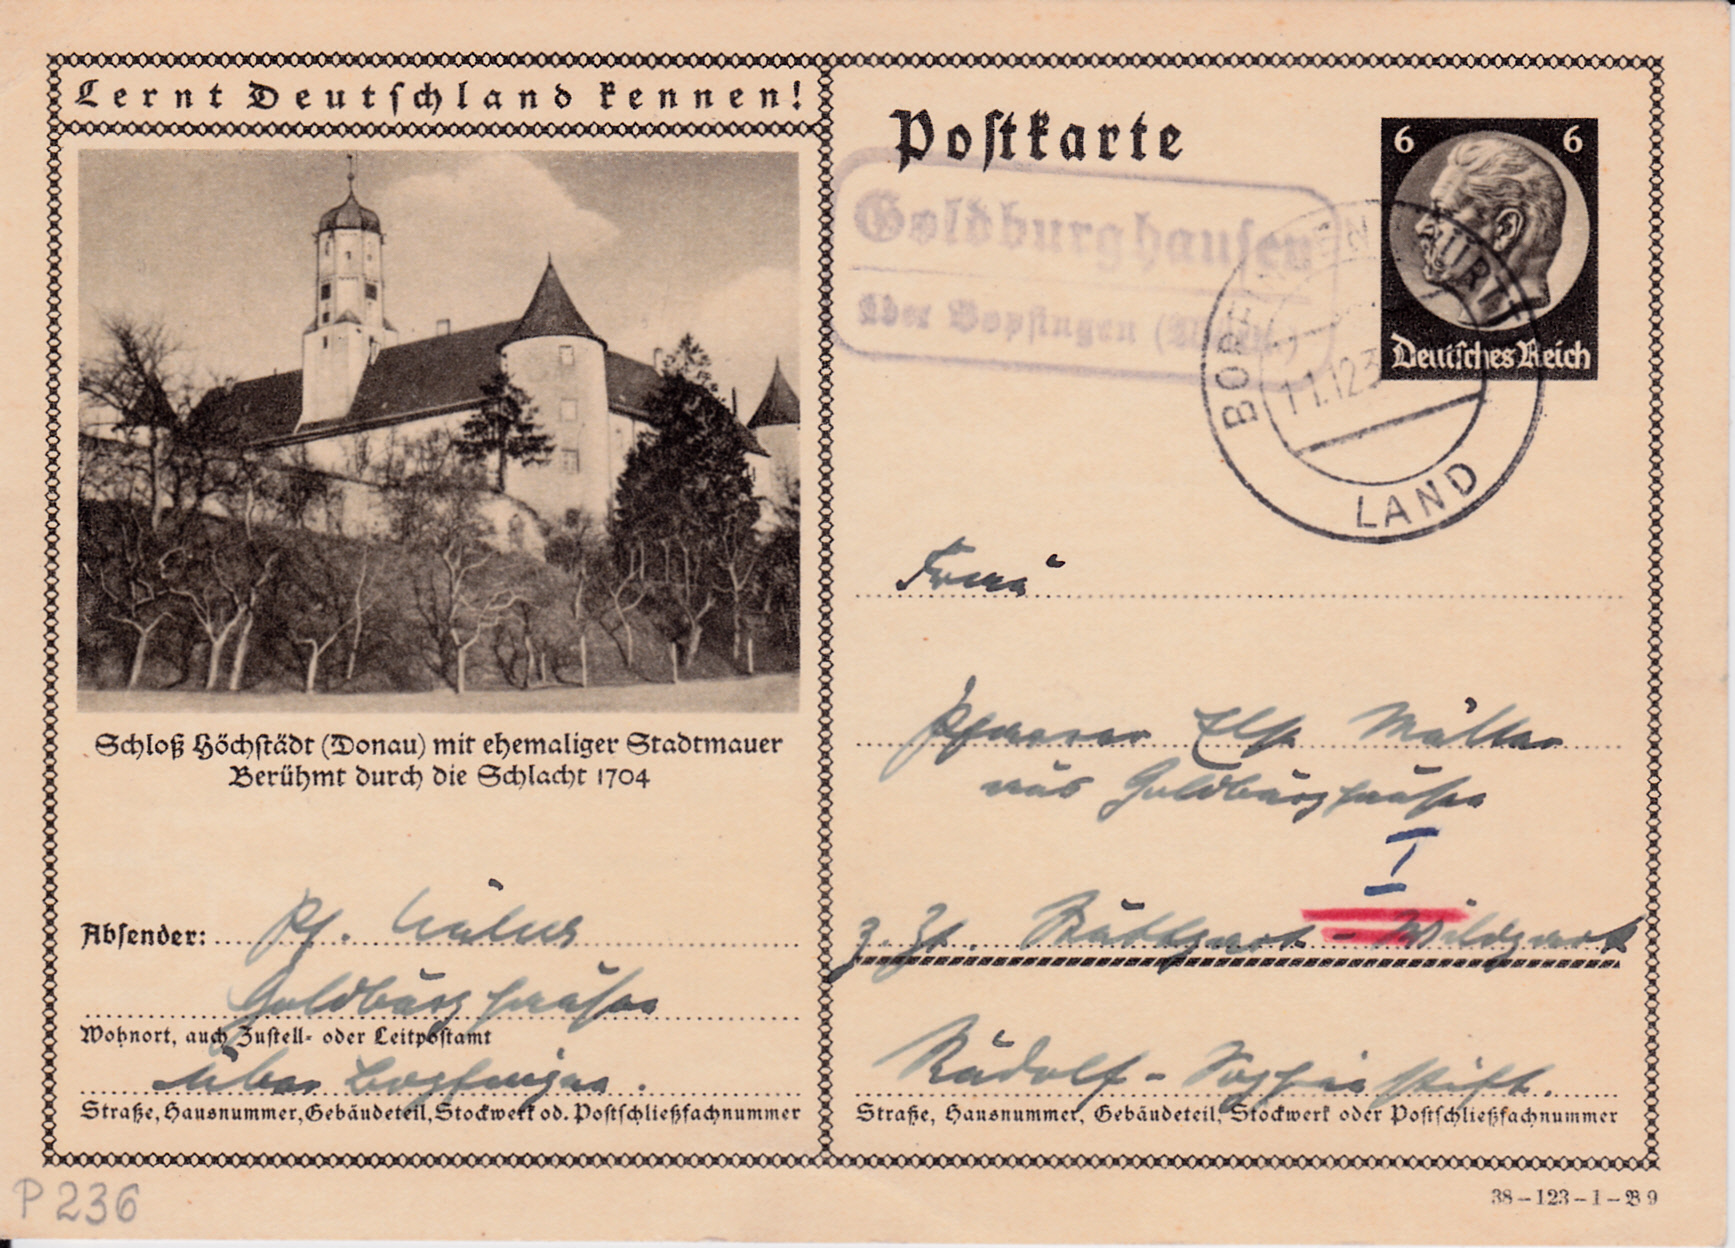 Lernt Deutschland kennen!
Schloß Höchstädt (Donau) mit ehemaliger Stadtmauer
Berühmt durch die Schlacht 1704
Absender: Pf.
Goldburghausen
Wohnort, auch Zustell- oder Leitpostamt
über Bopfingen.
Straße, Hausnummer, Gebäudeteil, Stockwerk od. Postschließfachnummer
P 236
Postkarte
6 6
Deutsches Reich
Goldburghausen
über Bopfingen (Württ.)
LAND
Frau
Pfarrer Else Müller
aus Goldburghausen
I
z. Zt. Stuttgart - Wildgart
Rudolf-Sophienstift.
Straße, Hausnummer, Gebäudeteil, Stockwerk oder Postschließfachnummer
38-123-1-B 9